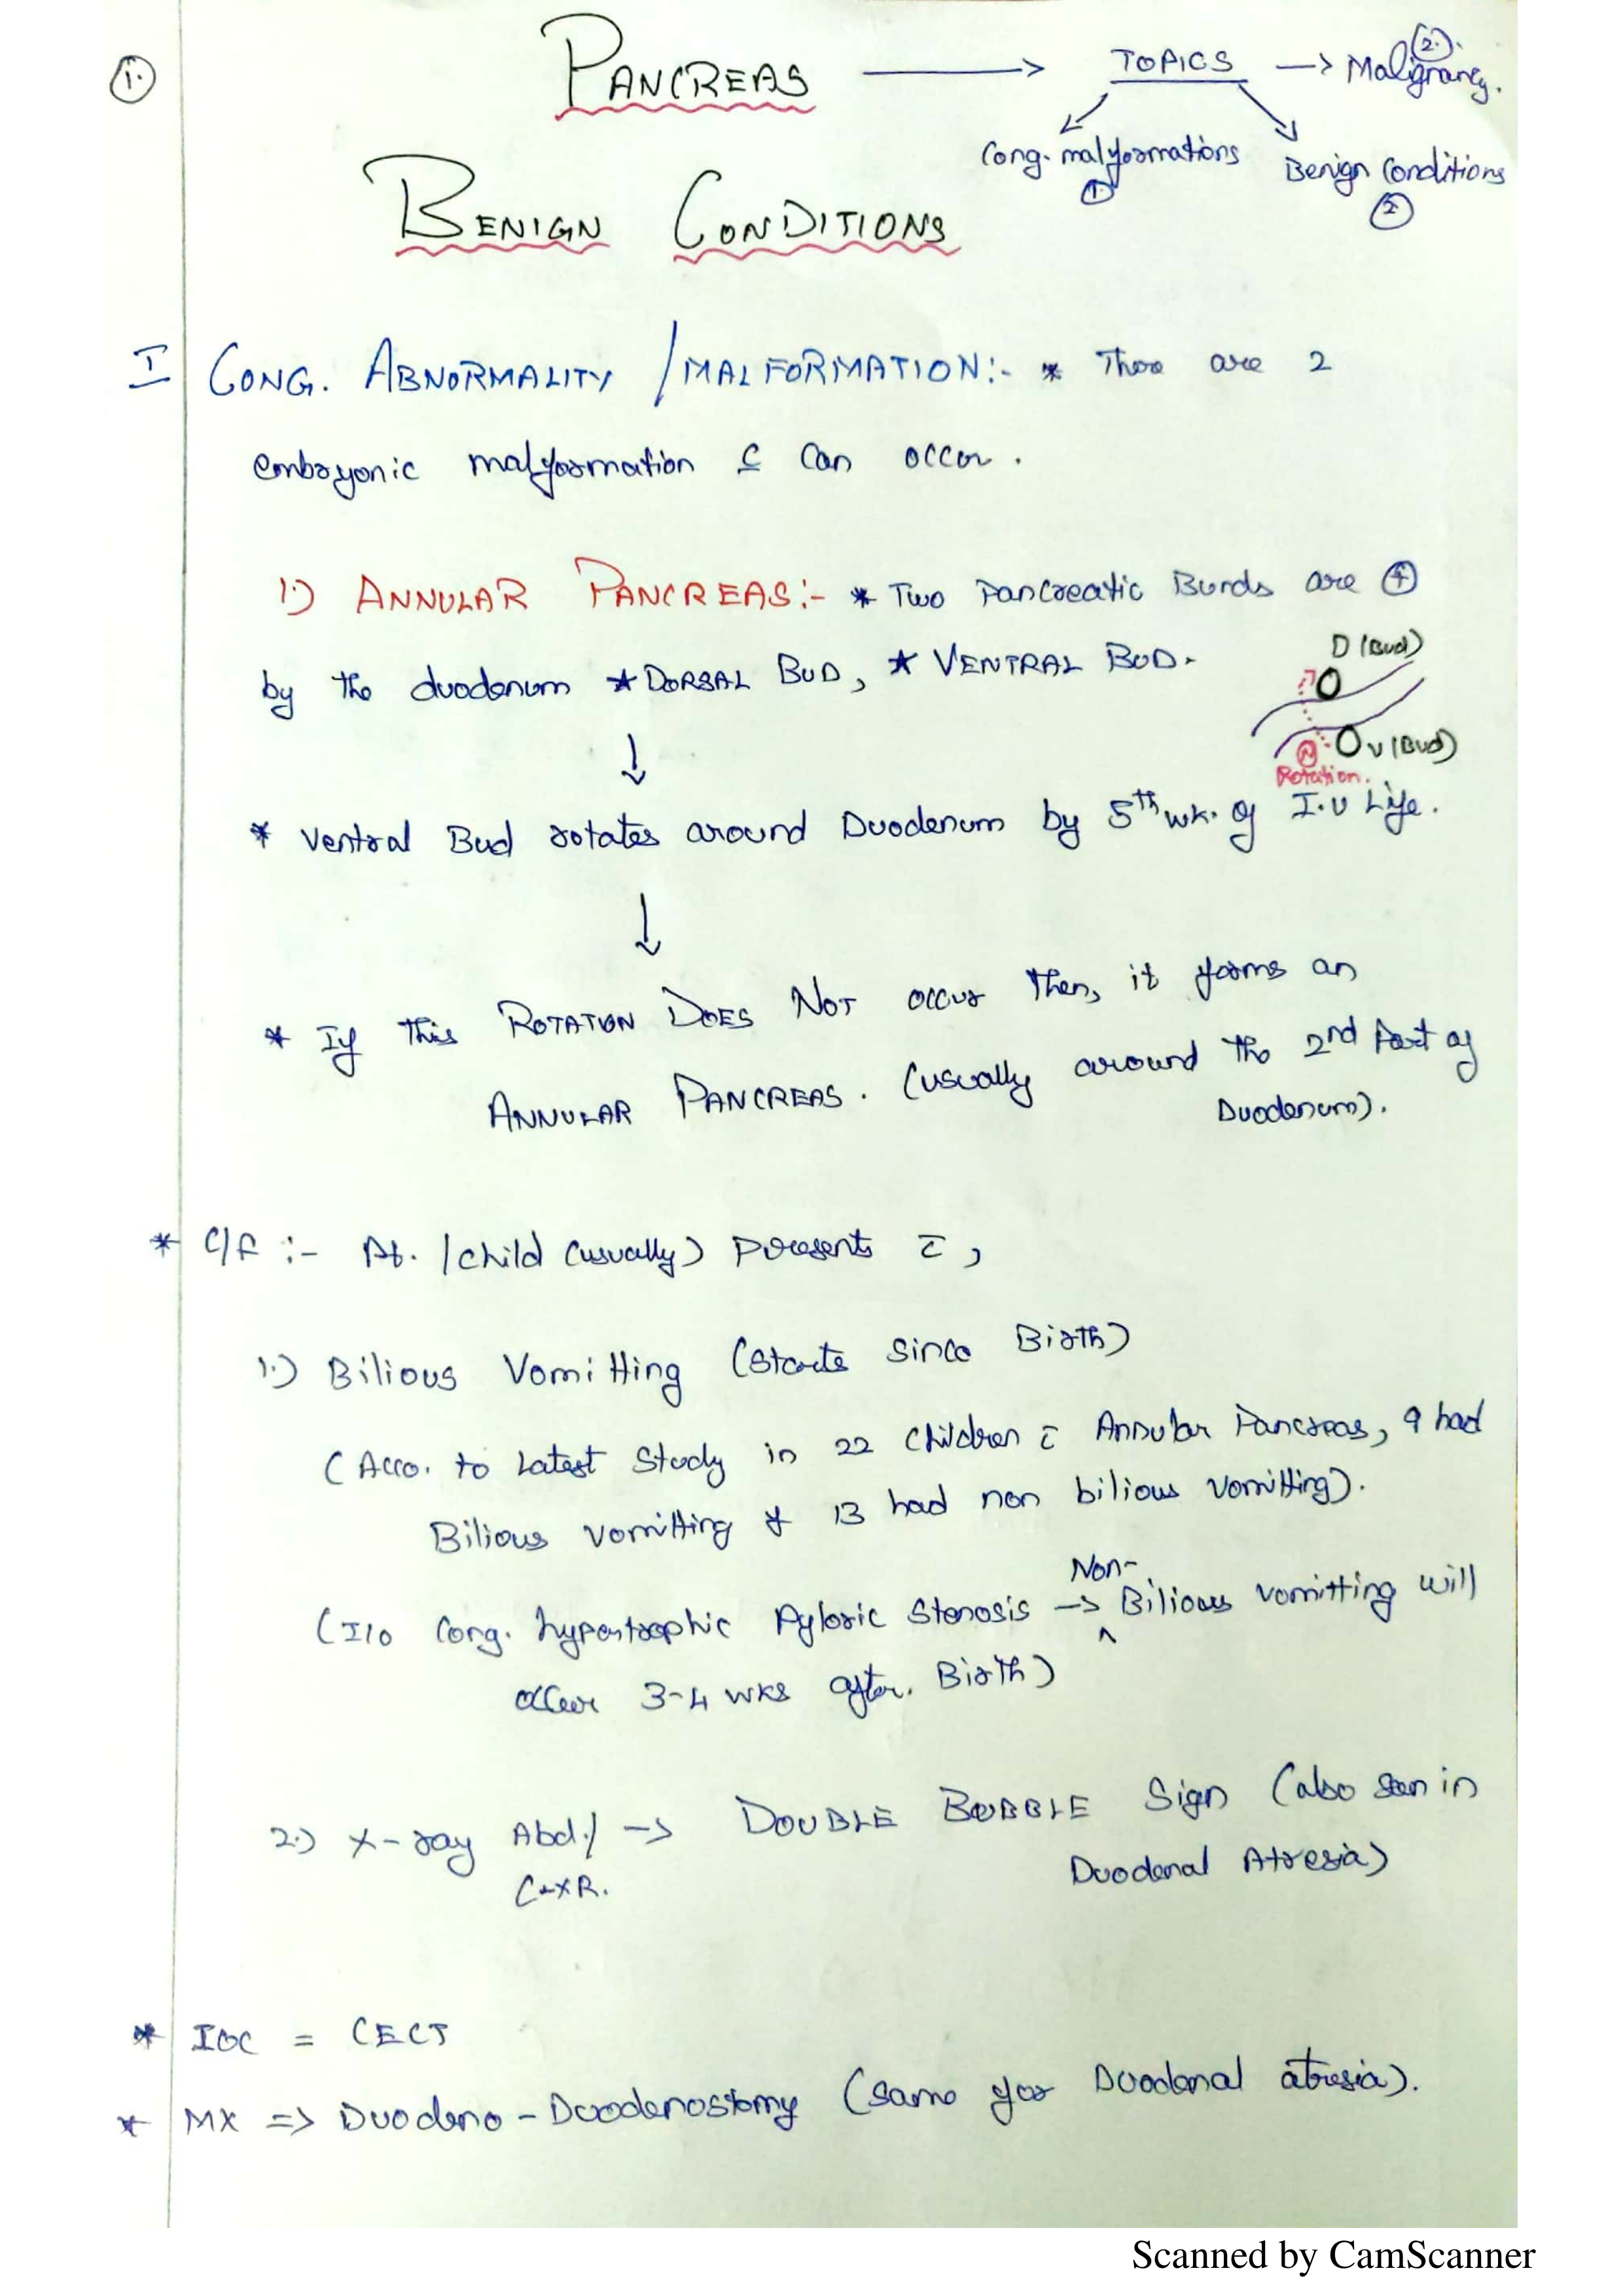 1.
PANCREAS → TOPICS → Malignancy. (2).
Cong. malformations Benign Conditions
1 2
BENIGN CONDITIONS
I CONG. ABNORMALITY / MALFORMATION:- * There are 2
embryonic malformation c̲ can occur.
1.) ANNULAR PANCREAS:- * Two Pancreatic Burds are ⊕
by the duodenum * DORSAL BUD, * VENTRAL BUD.
D (Bud)
V (Bud)
Rotation.
↓
* Ventral Bud rotates around Duodenum by 5th wk. of I.U Life.
↓
* If this ROTATION DOES NOT occur then, it forms an
ANNULAR PANCREAS. (usually around the 2nd Part of
Duodenum).
* C/F :- Pt. / child (usually) presents c̄,
1.) Bilious Vomitting (starts since Birth)
(Acco. to Latest Study in 22 children c̄ Annular Pancreas, 9 had
Bilious vomitting & 13 had non bilious vomitting).
Non-
(I/o Cong. hypertrophic Pyloric Stenosis → Bilious vomitting will
^
occur 3-4 wks after. Birth)
2.) X-ray Abd./ → DOUBLE BUBBLE Sign (also seen in
C-XR. Duodenal Atresia)
* IOC = CECT
* MX => Duodeno - Duodenostomy (same for Duodenal atresia).
Scanned by CamScanner